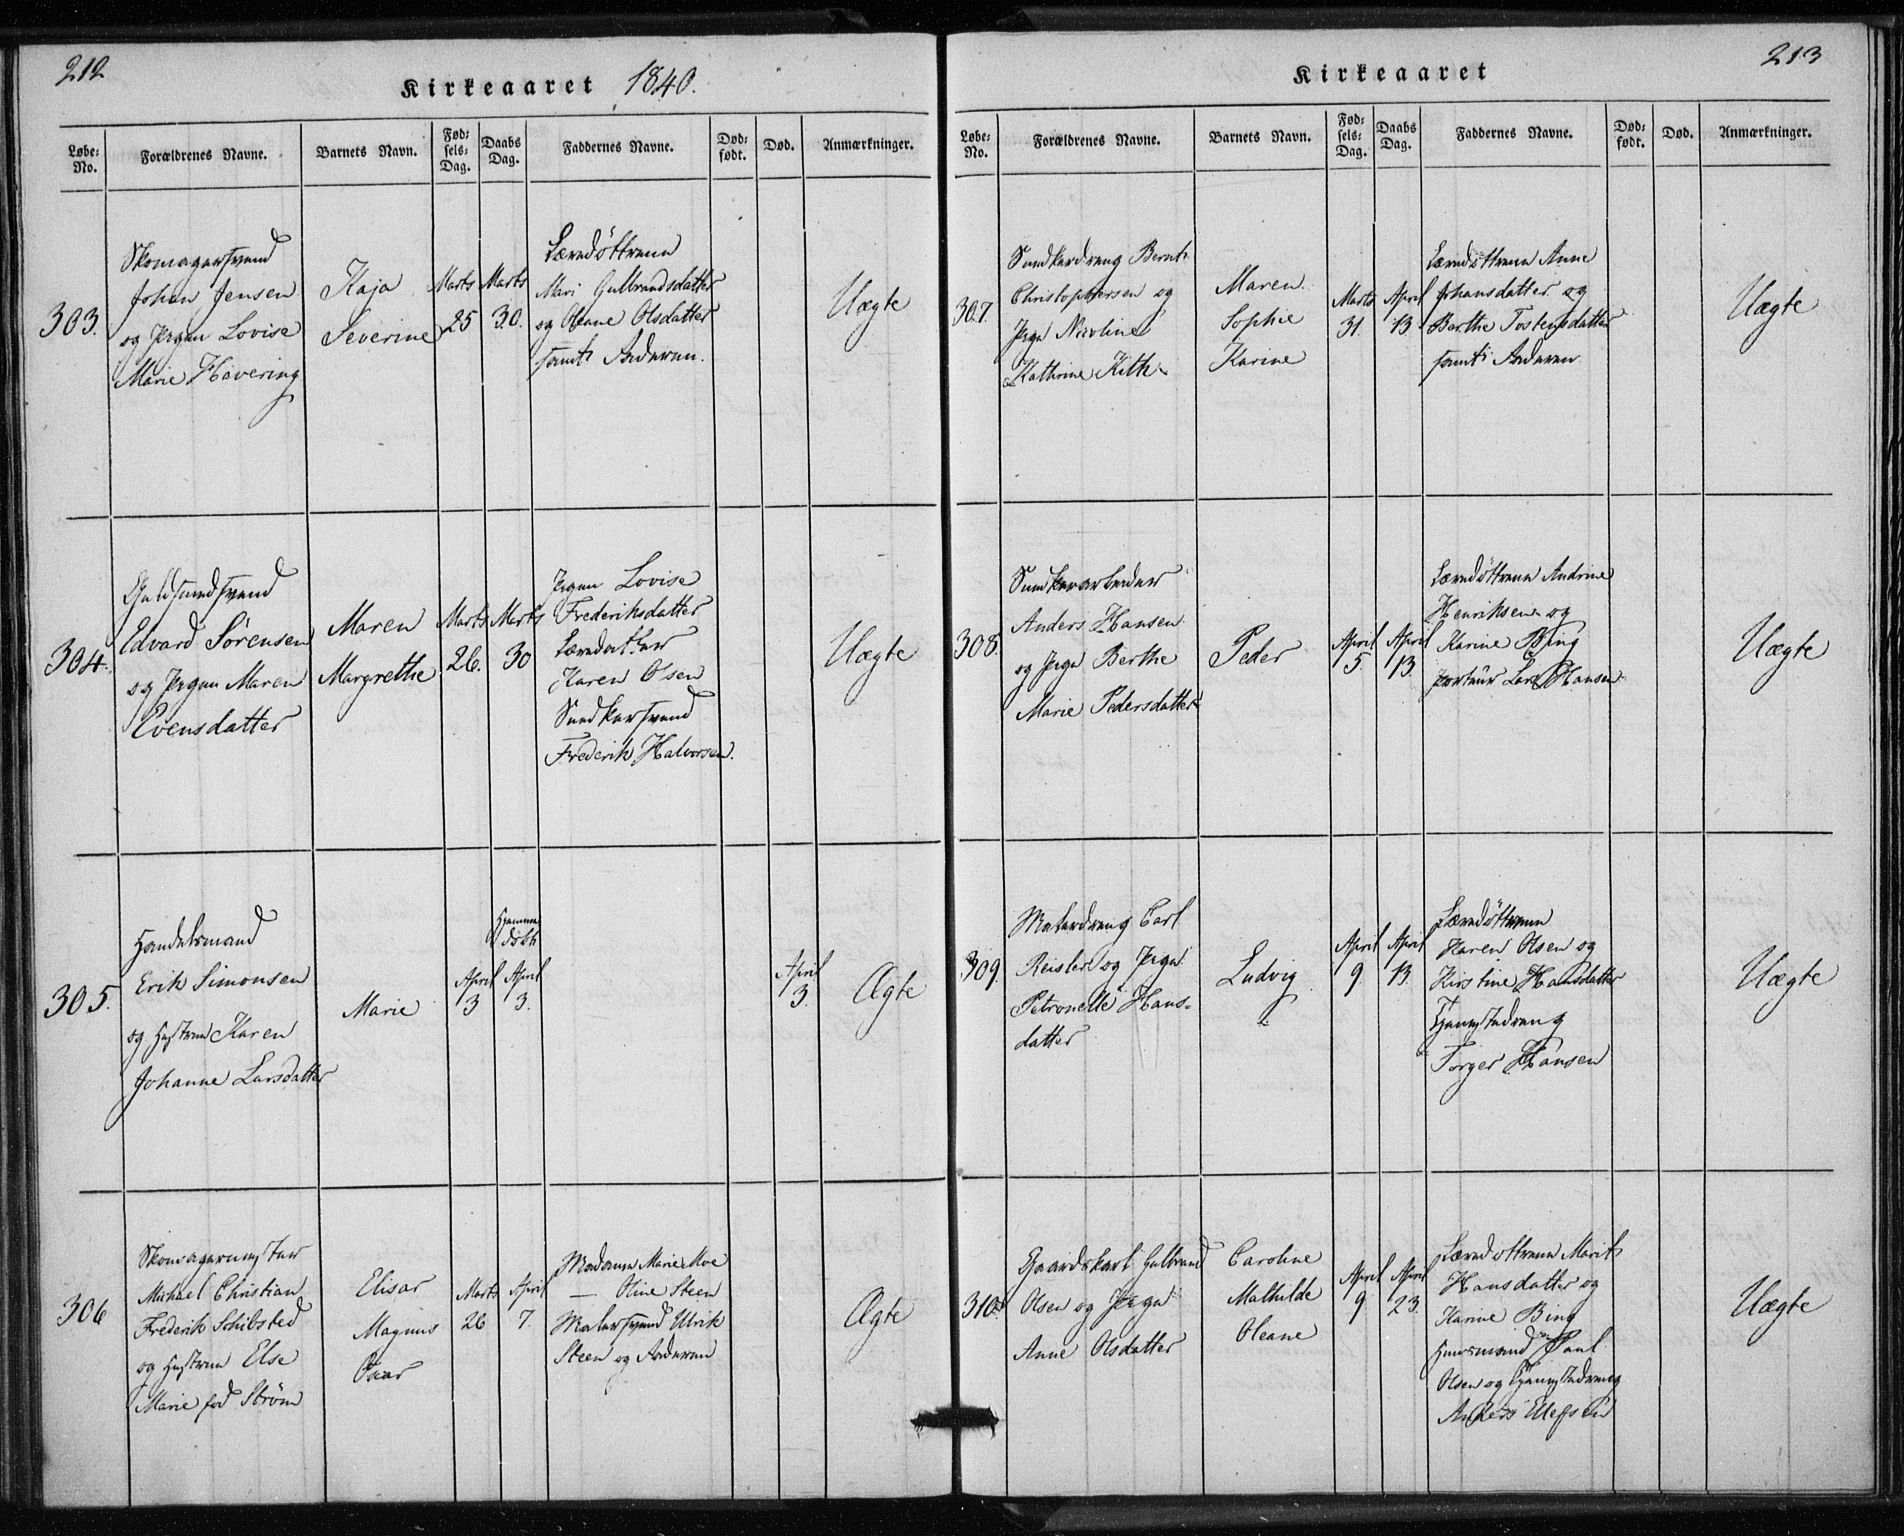 212
Kirkeaaret 1840.
Løbe-No. Forældrenes Navne. Barnets Navn. Fødsels-Dag. Daabs Dag. Faddernes Navne. Dødfødt. Død. Anmærkninger.
303.
Skomagersvend
Johan Jensen
og Pigen Lovise
Marie Hevering
Kaja
Severine
Marts
25
Marts
30.
Mari Gulbrandsdatter
og Oleane Olsdatter
samt Faderen.
Uægte
304.
Guldsmedsvend
Edvard Sørensen
og Pigen Maren
Evensdatter
Maren
Margrethe
Marts
26.
Marts
30
Pigen Lovise
Frederiksdatter
Karen Olsen
Snedkersvend
Frederik Halvorsen.
Uægte
305.
Handelsmand
Erik Simonsen
og Hustrue Karen
Johanne Larsdatter
Marie
April
3
Hjemme
døbt
April
3.
April
3.
Ægte
306
Skomagermester
Michael Christian
Frederik Schibsted
og Hustrue Else
Marie fød Strøm
Elisar
Magnus
Marts
26
April
7.
Madame Marie Moe
— Oline Steen
Malersvend Ulrik
Steen og Faderen
Ægte
213
Kirkeaaret
Løbe-No. Forældrenes Navne. Barnets Navn. Fødsels-Dag. Daabs Dag. Faddernes Navne. Dødfødt. Død. Anmærkninger.
307.
Snedkerdreng Bernt
Christophersen og
Pige Nicoline
Kathrine
Maren
Sophie
Karine
Marts
31.
April
13.
Anne
Johansdatter og
Berthe Tostensdatter
samt Faderen.
Uægte
308.
Snedkerarbeider
Anders Hansen
og Pige Berthe
Marie Pedersdatter
Peder
April
5
April
13.
Andrine
Henriksen og
Karine Bing
Lars Hansen
Uægte
309.
Malerdreng Carl
Reisler og Pige
Petronelle Hans-
datter
Ludvig
April
9.
April
13.
Karen Olsen og
Kirstine Hansdatter
Tjenestedreng
Torger Hansen
Uægte
310.
Gaardskarl Gulbrand
Olsen og Pige
Anne Olsdatter
Caroline
Mathilde
Oleane
April
9.
April
23.
Marit
Hansdatter og
Karine Bing
Huusmand Paul
Olsen og Tjenestedreng
Anders Ellefsen
Uægte